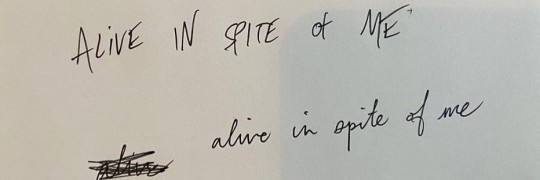 ALiVE IN SPITE of ME
alive in spite of me